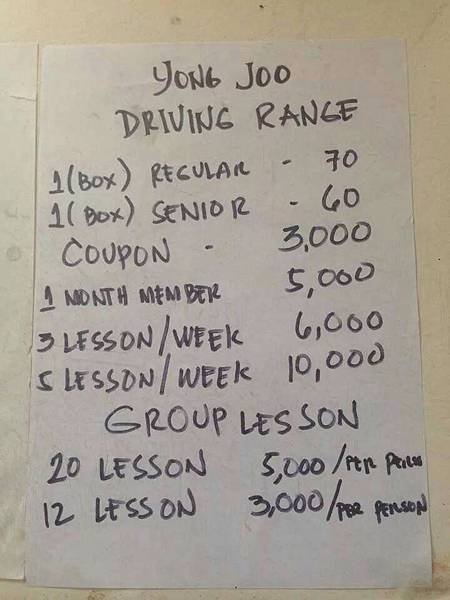 YONG JOO
DRIVING RANGE
1(BOX) REGULAR - 70
1(BOX) SENIOR - 60
COUPON - 3,000
1 MONTH MEMBER 5,000
3 LESSON/WEEK 6,000
5 LESSON/WEEK 10,000
GROUP LESSON
20 LESSON 5,000/PER
12 LESSON 3,000/PER PERSON